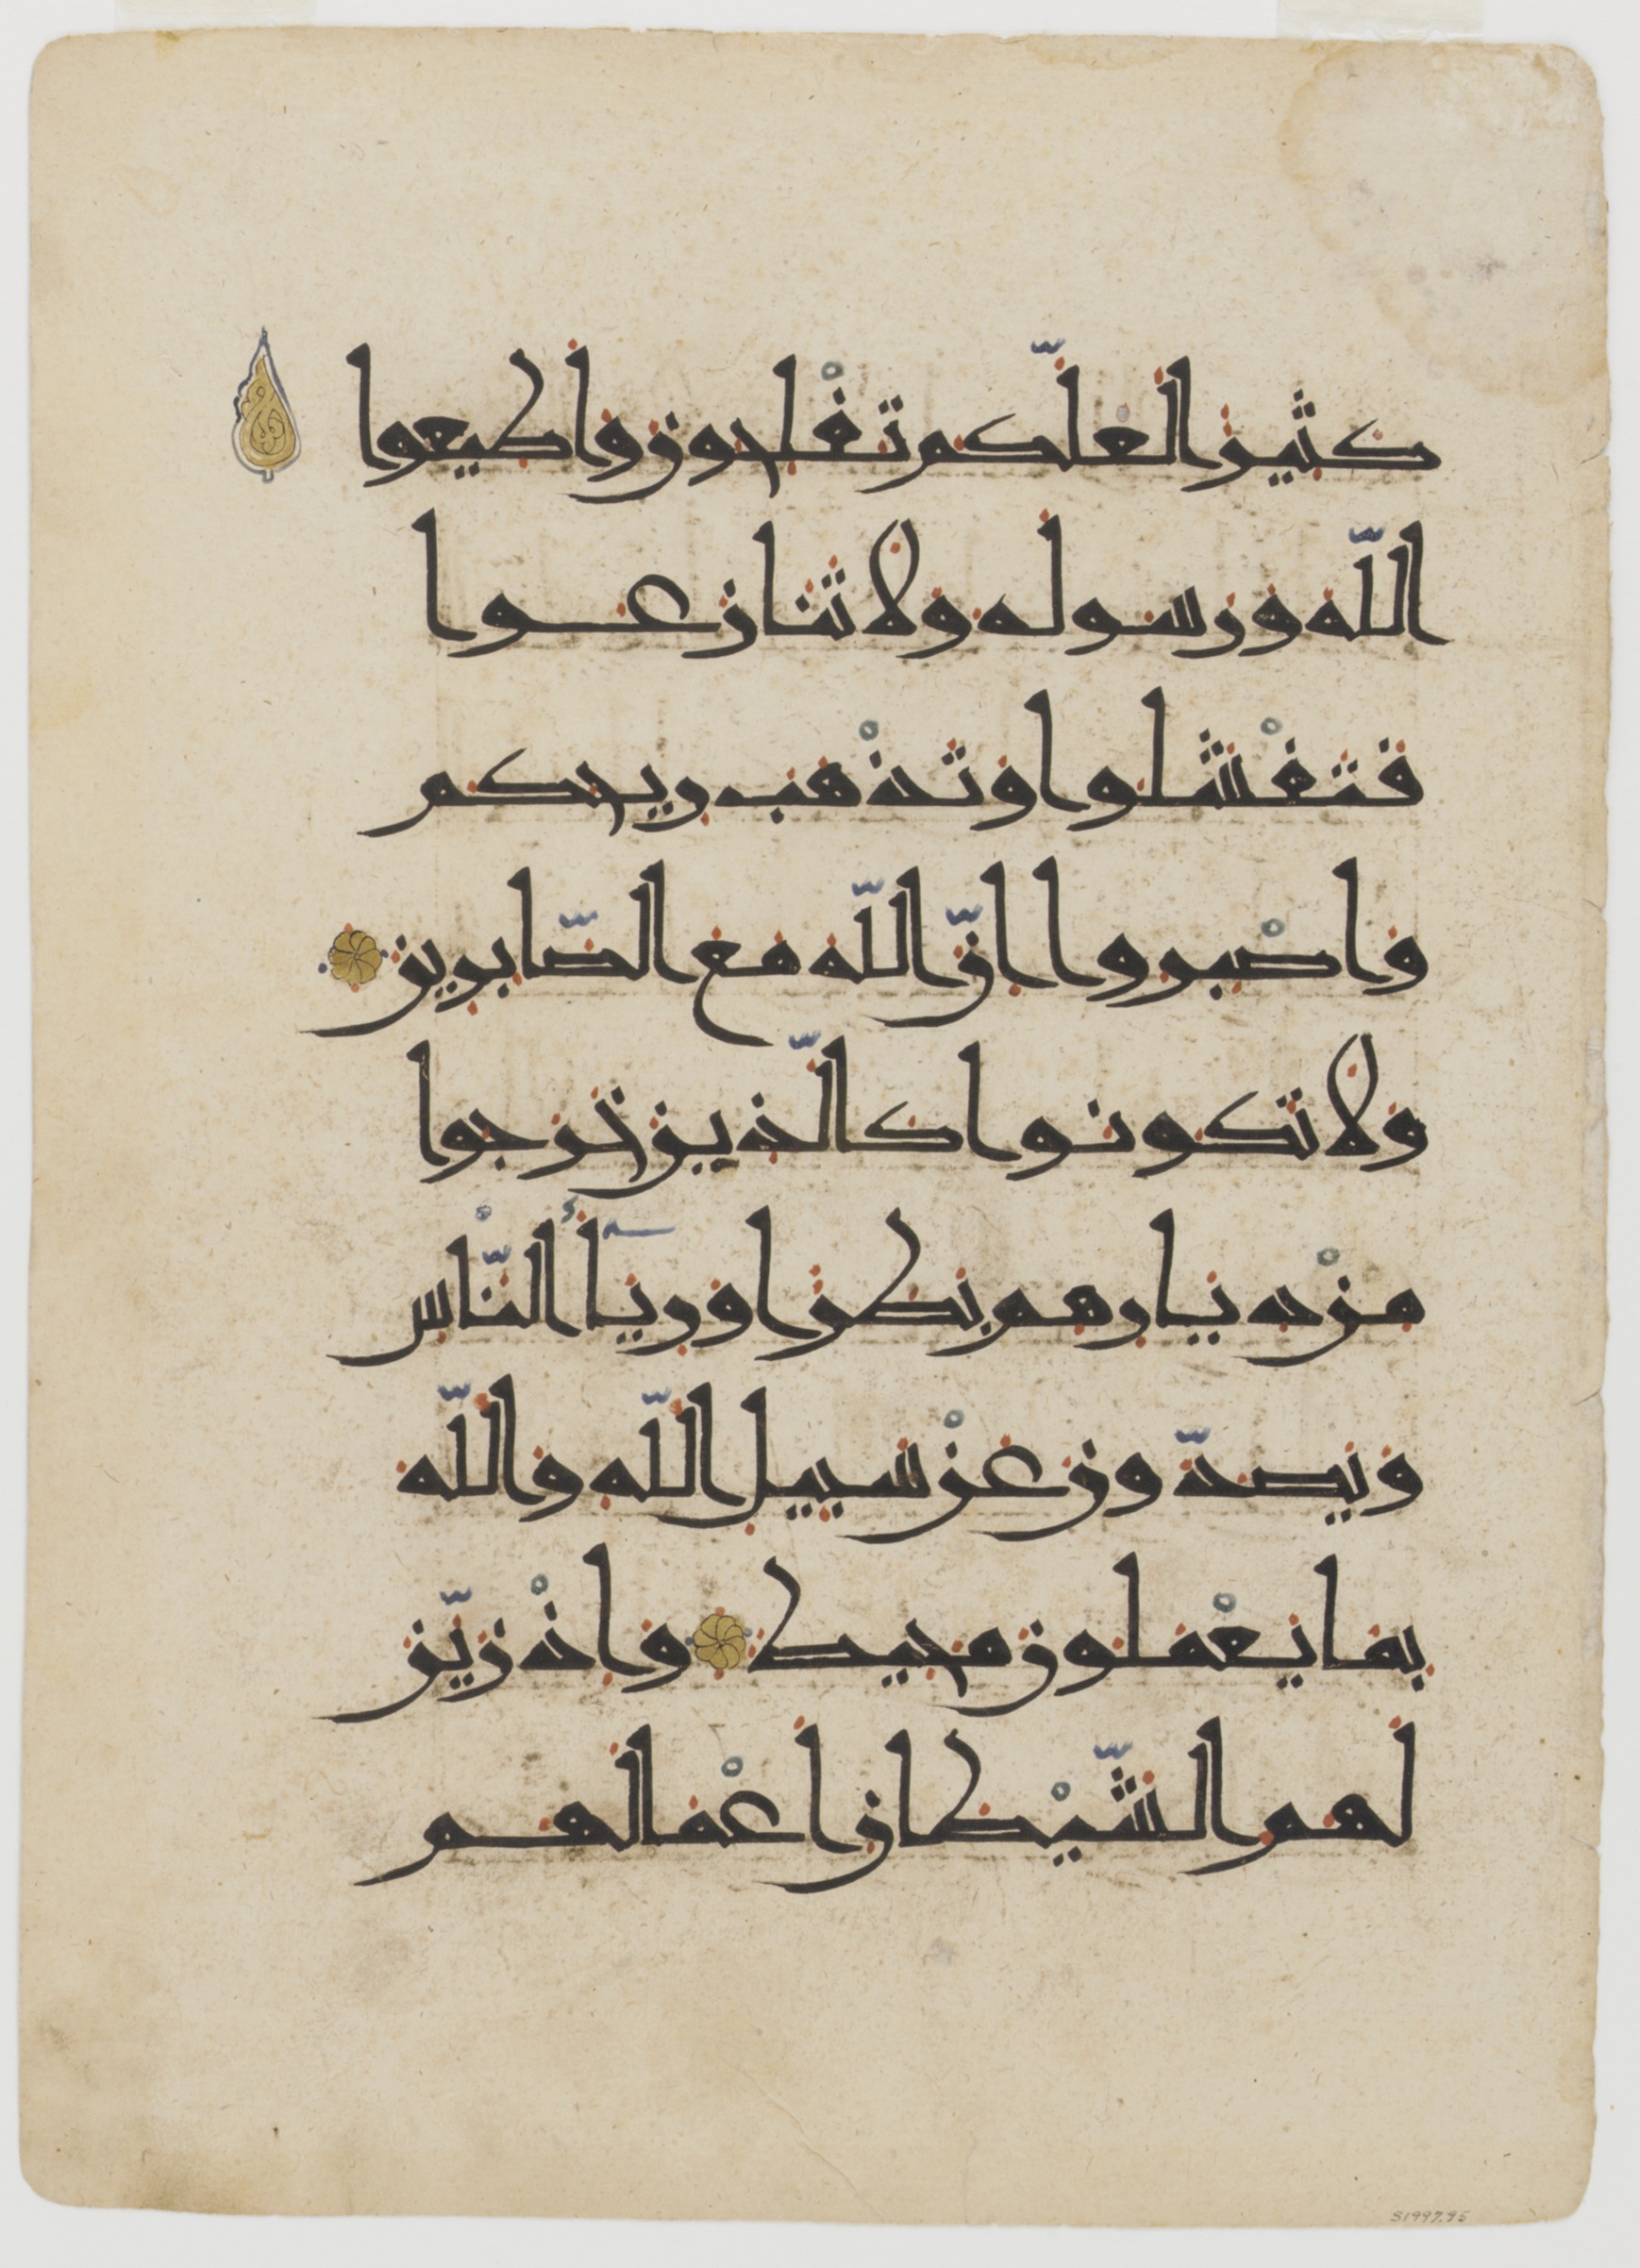 كثيرا لعلّكم تفْلحون وأطيعوا
اللّه ورسوله ولا تنازعوا
فتفْشلوا وتذْهب ريحكم
واصْبروا إنّ اللّه مع الصّابرين
ولا تكونوا كالّذين خرجوا
منْ ديارهم بطرا ورئآء النّاس
ويصدّون عنْ سبيل اللّه واللّه
بما يعْملون محيط وإذْ زيّن
لهم الشّيْطان أعْمالهم
S1997.95